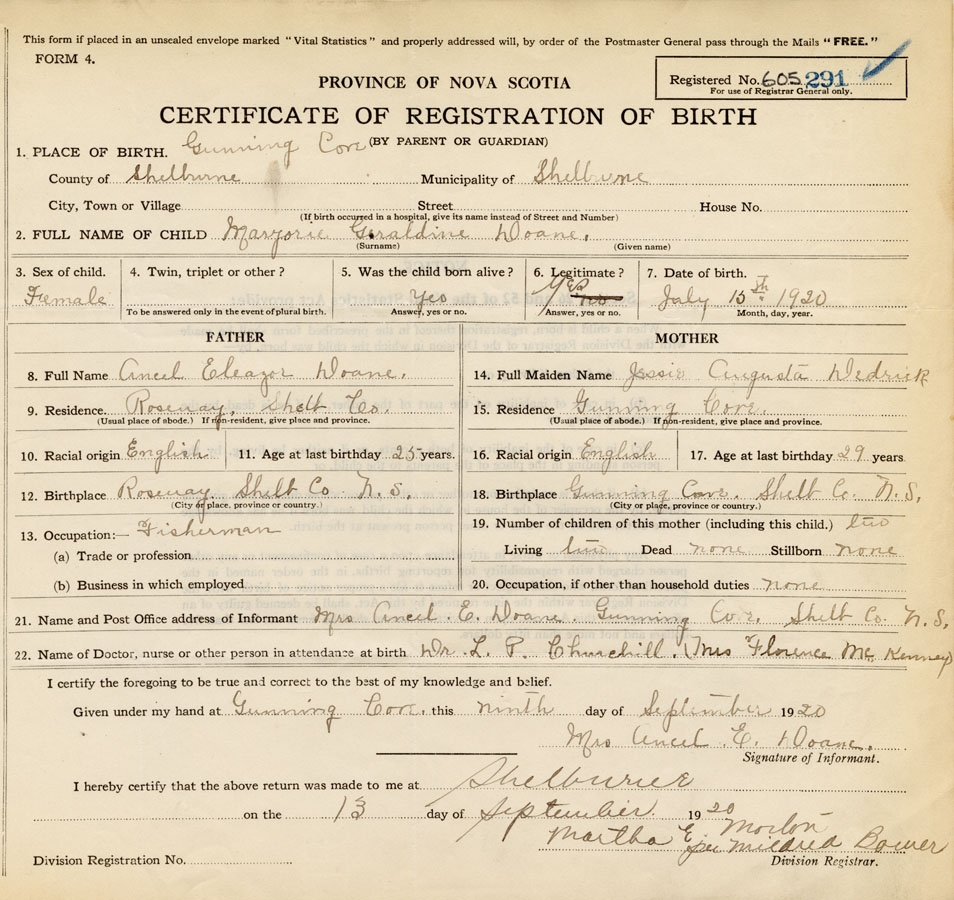 This form if placed in an unsealed envelope marked "Vital Statistics" and properly addressed will, by order of the Postmaster General pass through the Mails "FREE."
FORM 4.
Registered No. 605 291
For use of Registrar General only.
PROVINCE OF NOVA SCOTIA
CERTIFICATE OF REGISTRATION OF BIRTH
(BY PARENT OR GUARDIAN)
1. PLACE OF BIRTH. Gunning Cove
County of Shelburne Municipality of Shelburne
City, Town or Village Street House No.
(If birth occurred in a hospital, give its name instead of Street and Number)
2. FULL NAME OF CHILD Marjorie Geraldine Doane.
(Surname) (Given name)
3. Sex of child. 4. Twin, triplet or other? 5. Was the child born alive? 6. Legitimate? 7. Date of birth.
Female Yes Yes July 15th 1920
To be answered only in the event of plural birth. Answer, yes or no. Answer, yes or no. Month, day, year.
FATHER MOTHER
8. Full Name Ancel Eleazor Doane. 14. Full Maiden Name Jessie Augusta Dedrick
9. Residence. Roseway, Shelb Co. 15. Residence Gunning Cove.
(Usual place of abode.) If non-resident, give place and province. (Usual place of abode.) If non-resident, give place and province.
10. Racial origin English 11. Age at last birthday 25 years. 16. Racial origin English 17. Age at last birthday 29 years
12. Birthplace Roseway. Shelb Co. N.S. 18. Birthplace Gunning Cove. Shelb Co. N.S.
(City or place, province or country.) (City or place, province or country.)
13. Occupation:— Fisherman 19. Number of children of this mother (including this child.) two
(a) Trade or profession Living two Dead none Stillborn none
(b) Business in which employed 20. Occupation, if other than household duties none
21. Name and Post Office address of Informant Mrs Ancel E. Doane. Gunning Cove. Shelb Co. N.S.
22. Name of Doctor, nurse or other person in attendance at birth Dr. L. P. Churchill. (Mrs Florence Mc Kenney)
I certify the foregoing to be true and correct to the best of my knowledge and belief.
Given under my hand at Gunning Cove, this ninth day of September 1920
Mrs Ancel E. Doane.
Signature of Informant.
I hereby certify that the above return was made to me at Shelburne
on the 13 day of September 1920
Martha E. Morton
per Mildred Bower
Division Registration No. Division Registrar.